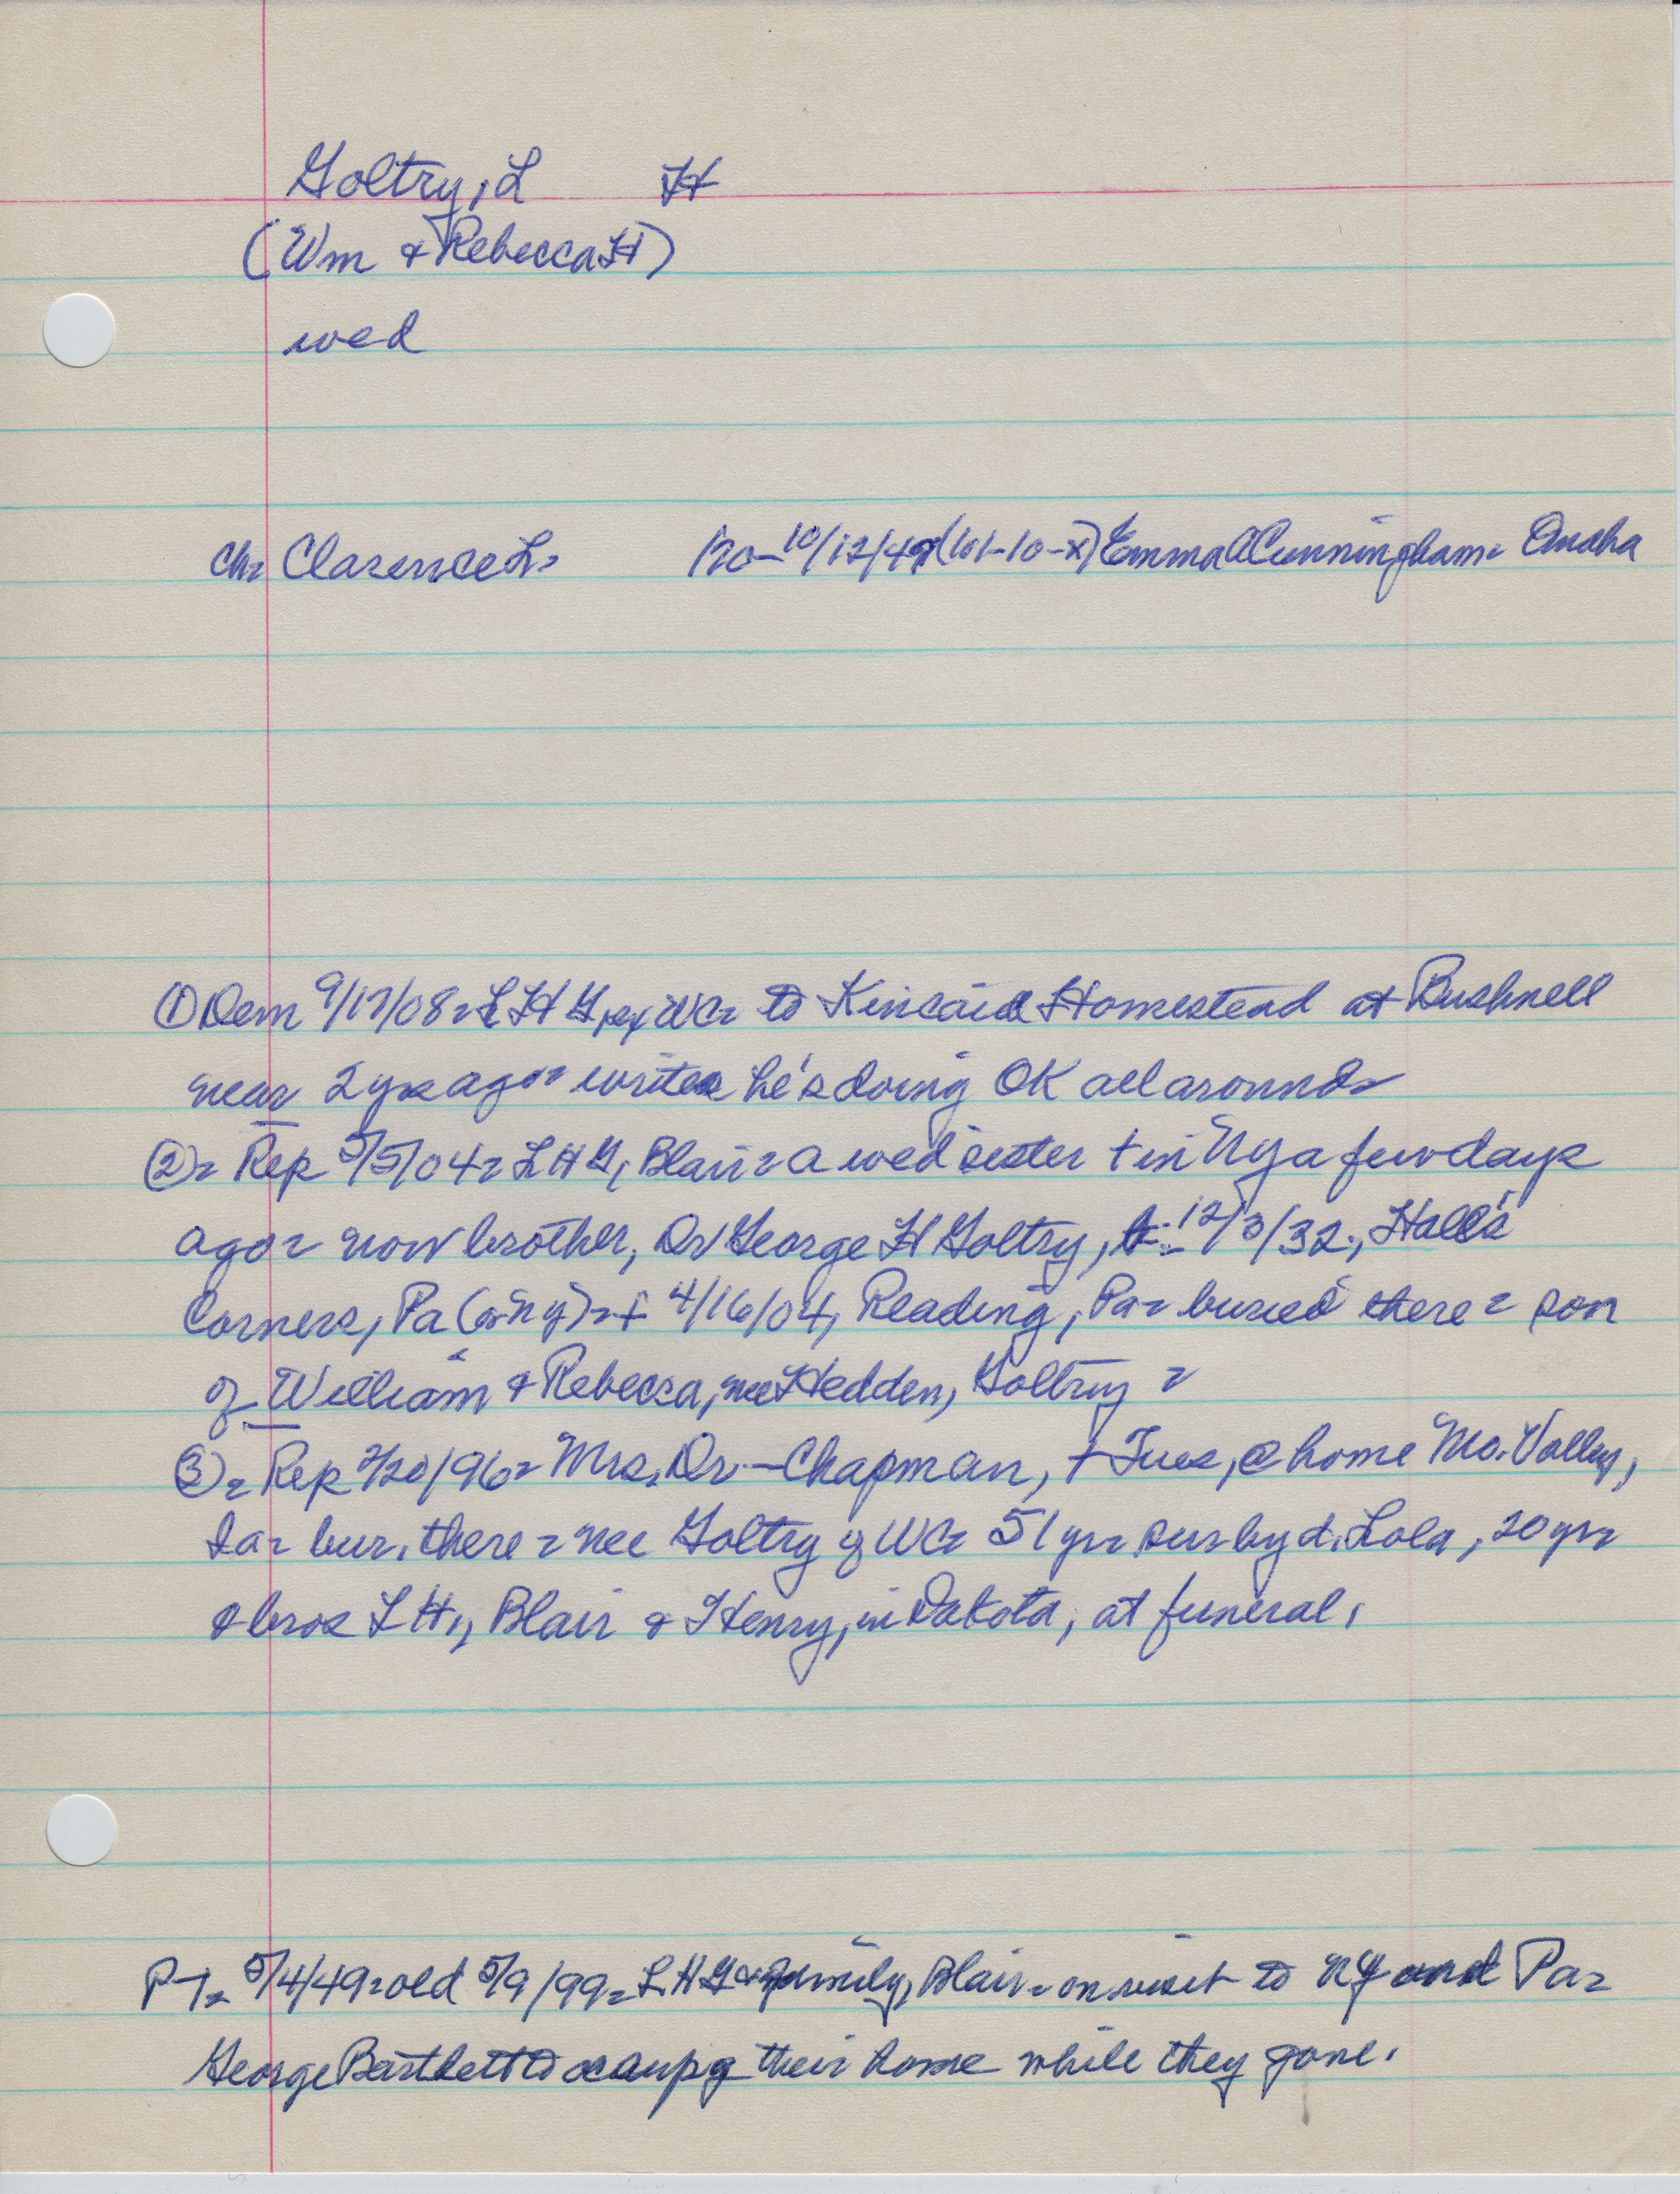 Goltry, L H
(Wm & Rebecca H)
wed
Ch- Clarence L- 120- 10/12/49 (101-10-x) Emma A Cunningham- Omaha
① Dem 9/17/08- L H G, ex WC- to Kincaid Homestead at Bushnell
near 2 yrs ago- writes he's doing OK all around-
②- Rep 5/5/04- L H G, Blair- a wed sister + in NY a few days
ago- now brother, Dr George H Goltry, b- 12/3/32, Hall's
Corners, Pa (or NY)- + 4/16/04, Reading, Pa- buried there- son
of William & Rebecca, nee Hedden, Goltry-
③- Rep 2/20/96- Mrs. Dr.- Chapman, + Tues, @ home Mo. Valley,
Ia- bur. there- nee Goltry of WC- 51 yr- sur by d. Lola, 20 yr-
& bros L H, Blair & Henry, in Dakota, at funeral.
PT- 5/4/49- old 5/9/99- L H G & family, Blair- on visit to NY and Pa-
George Bartlett to occupy their home while they gone.